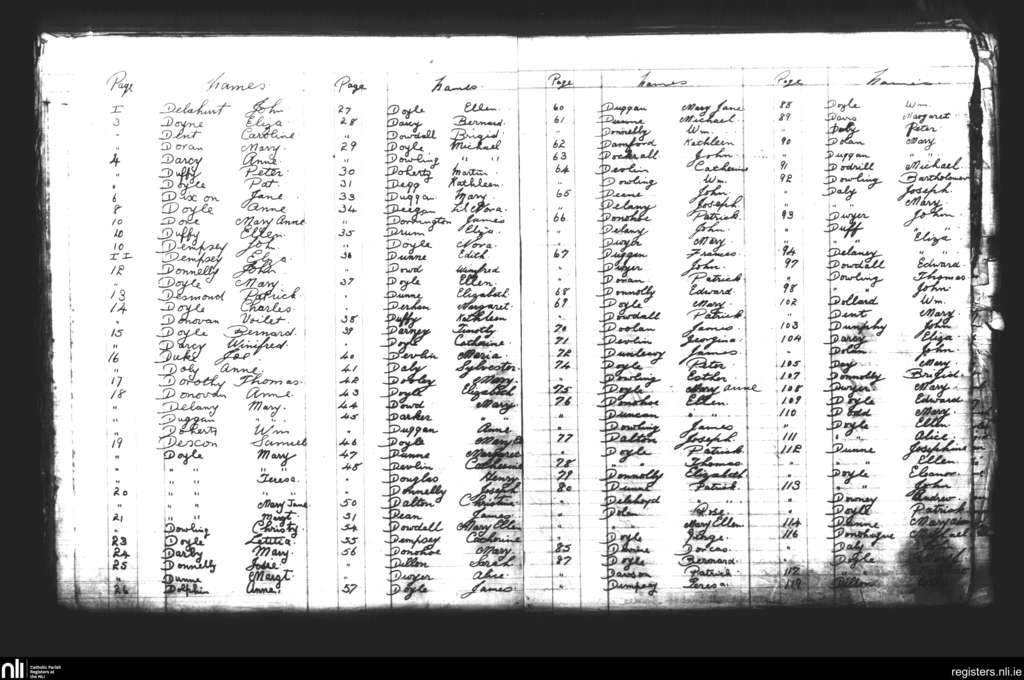 Page Names
I Delahunt John
3 Doyne Eliza
" Dent Caroline
" Doran Mary
4 Darcy Anne
" Duffy Peter
" Doyle Pat
6 Dixon Jane
8 Doyle Anne
10 Doyle Mary Anne
10 Duffy Ellen
10 Dempsey Joh
II Dempsey Eliza
12 Donnelly John
" Doyle Mary
13 Desmond Patrick
14 Doyle Charles
" Donovan Voilet
15 Doyle Bernard
" Darcy Winifred
16 Duke Joe
" Doly Anne
17 Dorothy Thomas
18 Donovan Anne
" Delany Mary
" Duggan "
" Doherty Wm
19 Descon Samuel
" Doyle Mary
" " "
" " Teresa
20 " "
" " Mary Jane
21 " Margt
" Dowling Christy
23 Doyle Letitia
24 Darby Mary
25 Donnelly Josie
" Dunne Margt
26 Dolphin Anne
Page Names
27 Doyle Ellen
28 Darcy Bernard
" Dowdall Brigid
29 Doyle Michael
" Dowling " "
30 Doherty Martin
31 Degg Kathleen
33 Duggan Mary
34 Deegan
" Donnington James
35 Drum Eliza
" Doyle Nora
36 Dunne Edith
" Dowd Winifred
37 Doyle Ellen
" Dunne Elizabeth
" Derham Margaret
38 Duffy Kathleen
39 Darney Timothy
" Doyle Catherine
40 Devlin Maria
41 Daly Sylvester
42 Dooley Mary
43 Doyle Elizabeth
44 Dowd Mary
45 Darker "
" Duggan Anne
46 Doyle
47 Dunne Margaret
48 Devlin Catherine
" Douglas Henry
" Donnelly Joseph
50 Dalton Christina
51 Dean James
54 Dowdall Mary Ellen
55 Dempsey Catherine
56 Donohoe Mary
" Dillon Sarah
" Dwyer Alice
57 Doyle James
Page Names
60 Duggan Mary Jane
61 Dunne Michael
" Donnelly Wm.
62 Damford Kathleen
63 Dockrall John
64 Devlin Catherine
" Dowling Wm
65 Deane John
" Delany Joseph
66 Donohoe Patrick
" Delany John
" Dwyer Mary
67 Duggan Frances
" Dwyer John
" Doran Patrick
68 Donnolly Edward
69 Doyle Mary
" Dowdall Patrick
70 Doolan James
71 Devlin Georgina
72 Dunleavy James
74 Doyle Peter
" Dowling Esther
75 Doyle Mary Anne
76 Donohoe Ellen
" Duncan " "
" Dowling James
77 Dalton Joseph
" Doyle Patrick
78 " Thomas
79 Donnolly Elizabeth
80 Dunne Patrick
" Delahoyd " "
" Dolan Rose
" " Mary Ellen
" Doyle George
85 Dunne Dorcas
87 Doyle Bernard
" Dawson Patrick
" Dumpsey Teresa
Page Names
88 Doyle Wm.
89 Davis Margaret
" Daly Peter
90 Dolan Mary
" Duggan " "
91 Dodrill Michael
92 Dowling Bartholomew
" Daly Joseph
" " Mary
93 Dwyer John
" Duff "
" " Eliza
94 Delaney " "
97 Dowdall Edward
" Dowling Thomas
98 " John
102 Dollard Wm.
" Dent Mary
103 Dumphy John
104 Darcy Eliza
" Dolan John
105 Day Mary
107 Donnolly Brigid
108 Dwyer Mary
109 Doyle Edward
110 Dodd Mary
" Doyle Ellen
111 " Alice
112 Dunne Josephine
" " Ellen
" Doyle Eleanor
113 " John
" Downey Andrew
" Doyle Patrick
114 Dunne
116 Donohughue Michael
" Daly
" Doyle
117
119 Dillon
nli Catholic Parish
Registers at
the NLI
registers.nli.ie